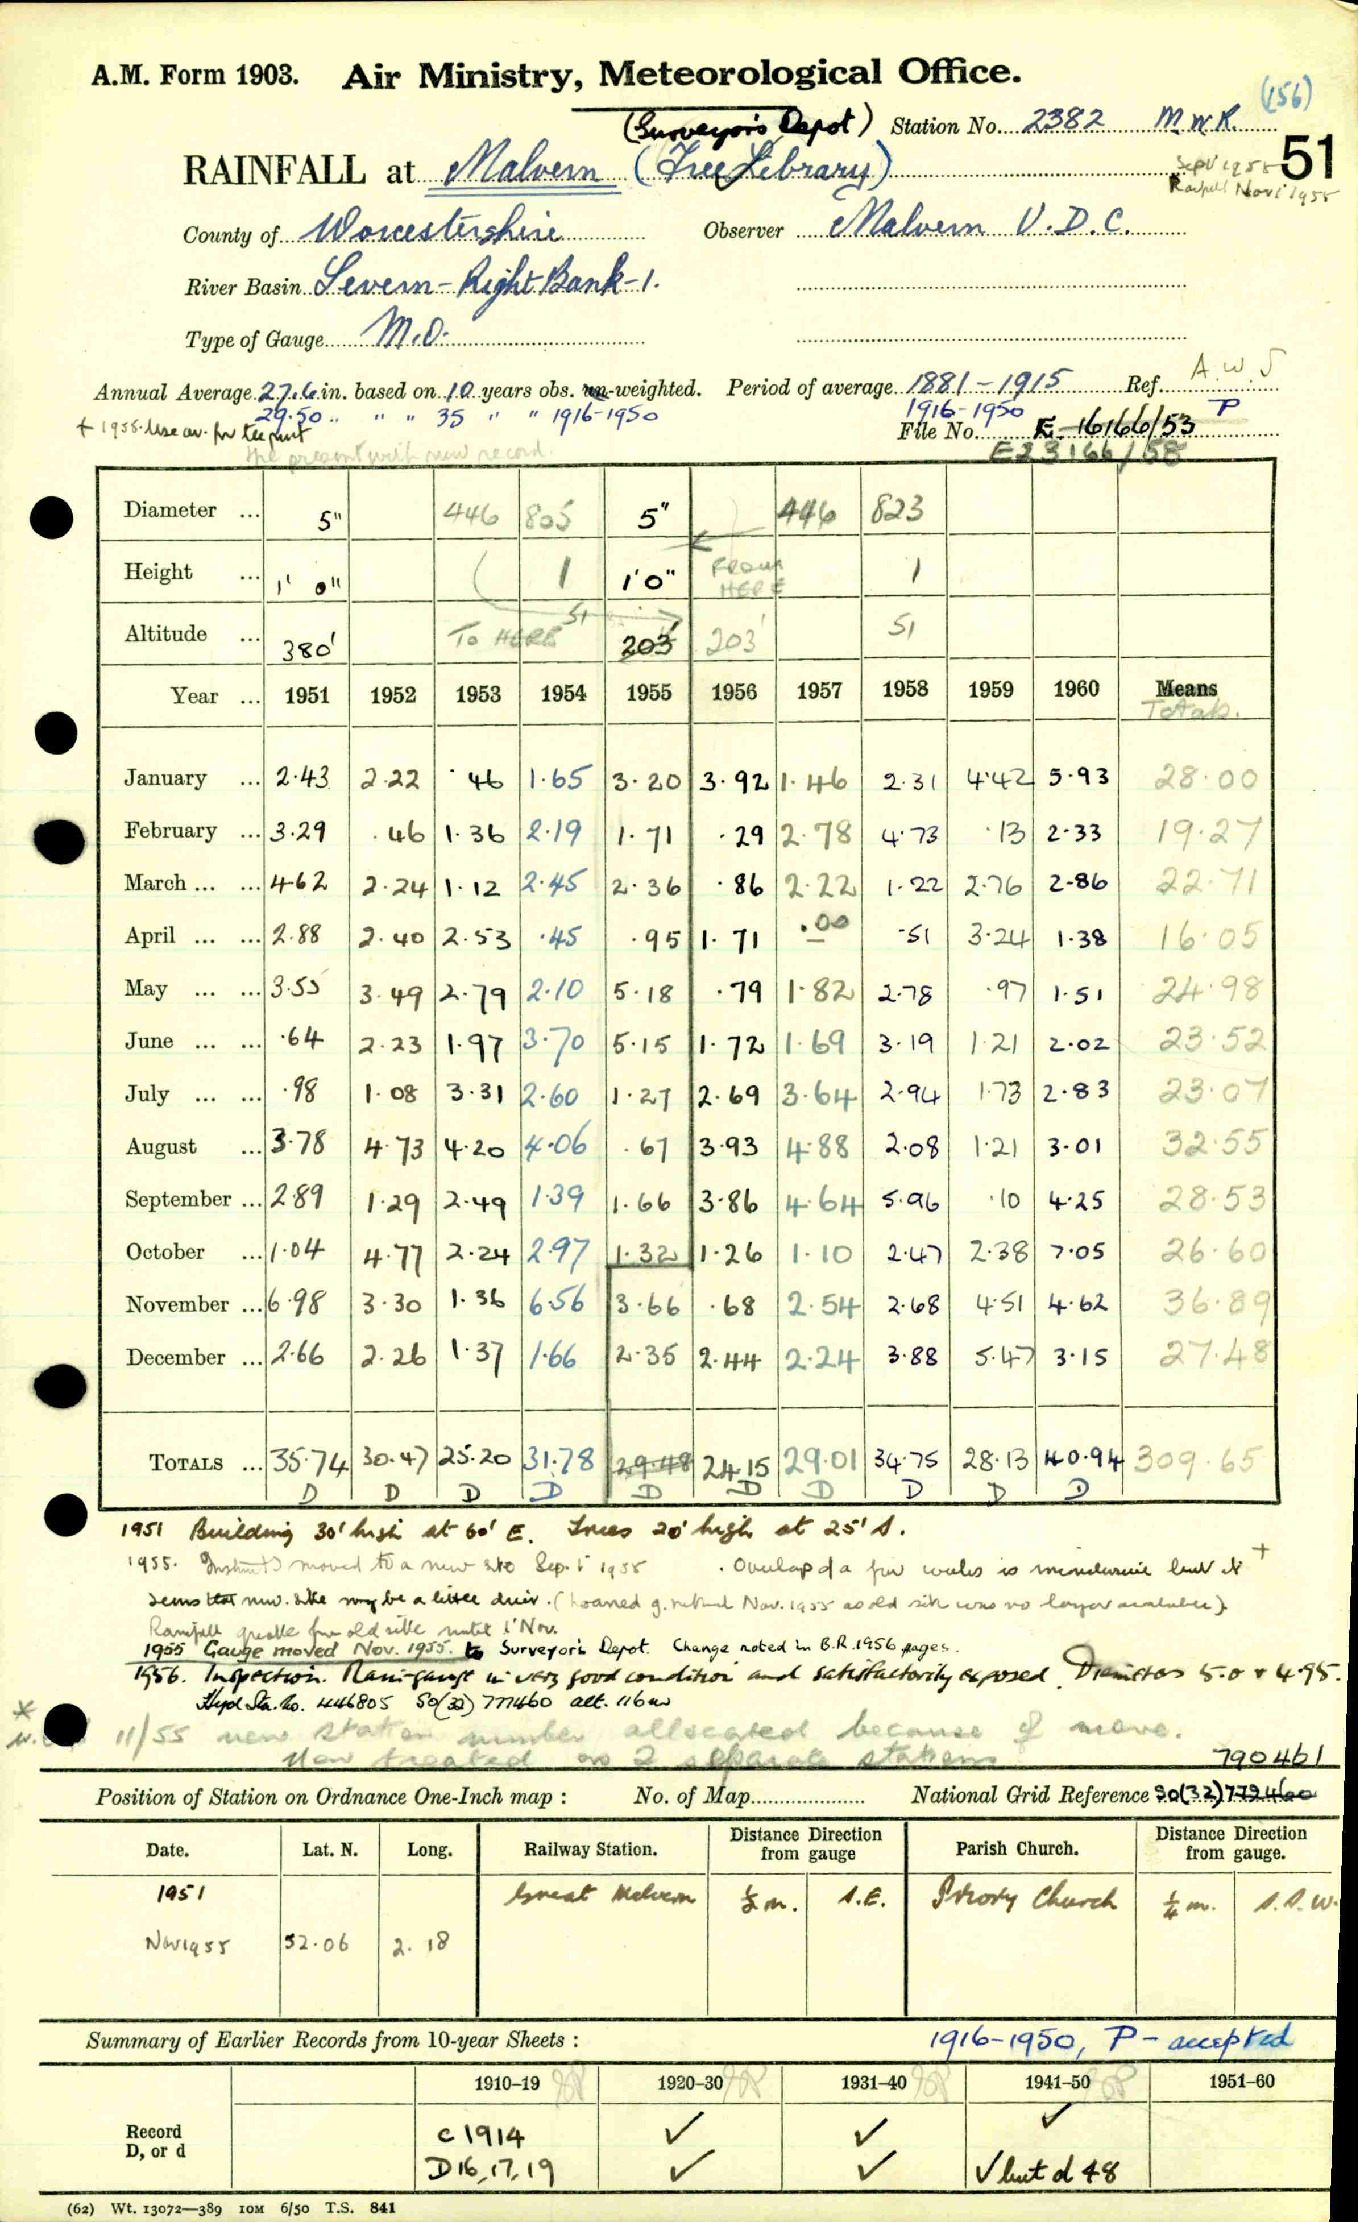 A.M. Form 1903. Air Ministry, Meteorological Office.
(156)
(Surveyor's Depot) Station No. 2382 M.W.R.
51
RAINFALL at Malvern (Free Library)
Sept 1955
Rainfall Nov 1 1955
County of Worcestershire Observer Malvern U.D.C.
River Basin Severn - Right Bank - 1.
Type of Gauge M.O.
A.W.S
Annual Average 27.6 in. based on 10 years obs. un-weighted. Period of average 1881-1915 Ref.
29.50 " " " 35 " " 1916-1950 1916-1950 P
+ 1955 Use av. for the present File No. E 16166/53
the present with new record. E23166/58
Diameter ... 5" 446 805 5" 446 823
Height ... 1' 0" 1 1'0" FROM HERE 1
Altitude ... 380' TO HERE 51 203' 203' 51
Year ... 1951 1952 1953 1954 1955 1956 1957 1958 1959 1960 Means
Totals.
January ... 2.43 2.22 .46 1.65 3.20 3.92 1.46 2.31 4.42 5.93 28.00
February ... 3.29 .46 1.36 2.19 1.71 .29 2.78 4.73 .13 2.33 19.27
March ... ... 4.62 2.24 1.12 2.45 2.36 .86 2.22 1.22 2.76 2.86 22.71
April ... ... 2.88 2.40 2.53 .45 .95 1.71 .00 .51 3.24 1.38 16.05
May ... ... 3.55 3.49 2.79 2.10 5.18 .79 1.82 2.78 .97 1.51 24.98
June ... ... .64 2.23 1.97 3.70 5.15 1.72 1.69 3.19 1.21 2.02 23.52
July ... ... .98 1.08 3.31 2.60 1.27 2.69 3.64 2.94 1.73 2.83 23.07
August ... 3.78 4.73 4.20 4.06 .67 3.93 4.88 2.08 1.21 3.01 32.55
September ... 2.89 1.29 2.49 1.39 1.66 3.86 4.64 5.96 .10 4.25 28.53
October ... 1.04 4.77 2.24 2.97 1.32 1.26 1.10 2.47 2.38 7.05 26.60
November ... 6.98 3.30 1.36 6.56 3.66 .68 2.54 2.68 4.51 4.62 36.89
December ... 2.66 2.26 1.37 1.66 2.35 2.44 2.24 3.88 5.47 3.15 27.48
TOTALS ... 35.74 30.47 25.20 31.78 29.48 24.15 29.01 34.75 28.13 40.94 309.65
D D D D D D D D D D
1951 Building 30' high at 60' E. Trees 20' high at 25' S.
1955. Instruts moved to a new site Sep. 1 1955. Overlap of a few weeks is inconclusive but it +
seems that new site may be a little drier. (Loaned g. returned Nov. 1955 as old site was no longer available).
Rainfall quotable from old site until 1 Nov.
1955 Gauge moved Nov. 1955. to Surveyor's Depot. Change noted in B.R. 1956 pages.
1956. Inspection. Rain-gauge in very good condition and satisfactorily exposed. Diameters 5.0 & 4.95.
Hyd Sta. No. 446805 SO(32) 777460 alt. 116m
*
11/55 new station number allocated because of move.
Now treated as 2 separate stations
790461
Position of Station on Ordnance One-Inch map : No. of Map National Grid Reference SO(32)772460
Date. Lat. N. Long. Railway Station. Distance from Direction gauge Parish Church. Distance from Direction gauge.
1951 Great Malvern ½ m. S.E. Priory Church ¼ m. S.S.W.
Nov 1955 52.06 2.18
Summary of Earlier Records from 10-year Sheets : 1916-1950, P - accepted
1910-19 1920-30 1931-40 1941-50 1951-60
Record c 1914 ✓ ✓ ✓
D, or d D 16, 17, 19 ✓ ✓ ✓ but d 48
(62) Wt. 13072—389 10M 6/50 T.S. 841